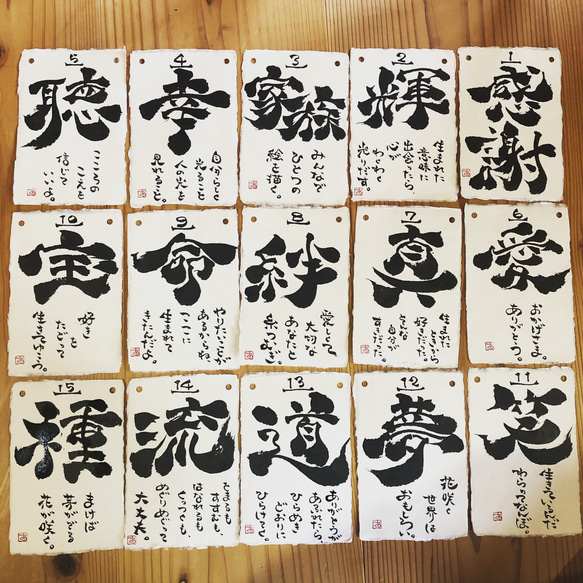 1
感謝
2
輝
生まれた
意味に
出会ったら、
心が
わくわく
光りだす
3
家族
みんなで
ひとつの
絵を描く。
4
幸
自分らしく
光ること
人の光を
見れること。
5
聴
こころの
こえを
信じて
いいよ。
6
愛
おかげさま。
ありがとう。
7
真
生まれた
ときから
好きだった。
そんな
自分が
すきだった。
8
絆
愛しくて
大切な
あなたと
糸つむぎ。
9
命
やりたいことが
あるからね、
ここに
生まれて
きたんだよ。
10
宝
好き
を
たどって
生きてゆこう。
11
笑
生きているんだ
わらってなんぼ。
12
夢
花咲く
世界は
おもしろい。
13
道
ありがとうが
あふれたら、
ひらめき
どおりに
ひらけてく。
14
流
とまるも
すすむも
はなれるも
くっつくも、
めぐりめぐって
大丈夫。
15
種
まけば
芽がでる
花が咲く。